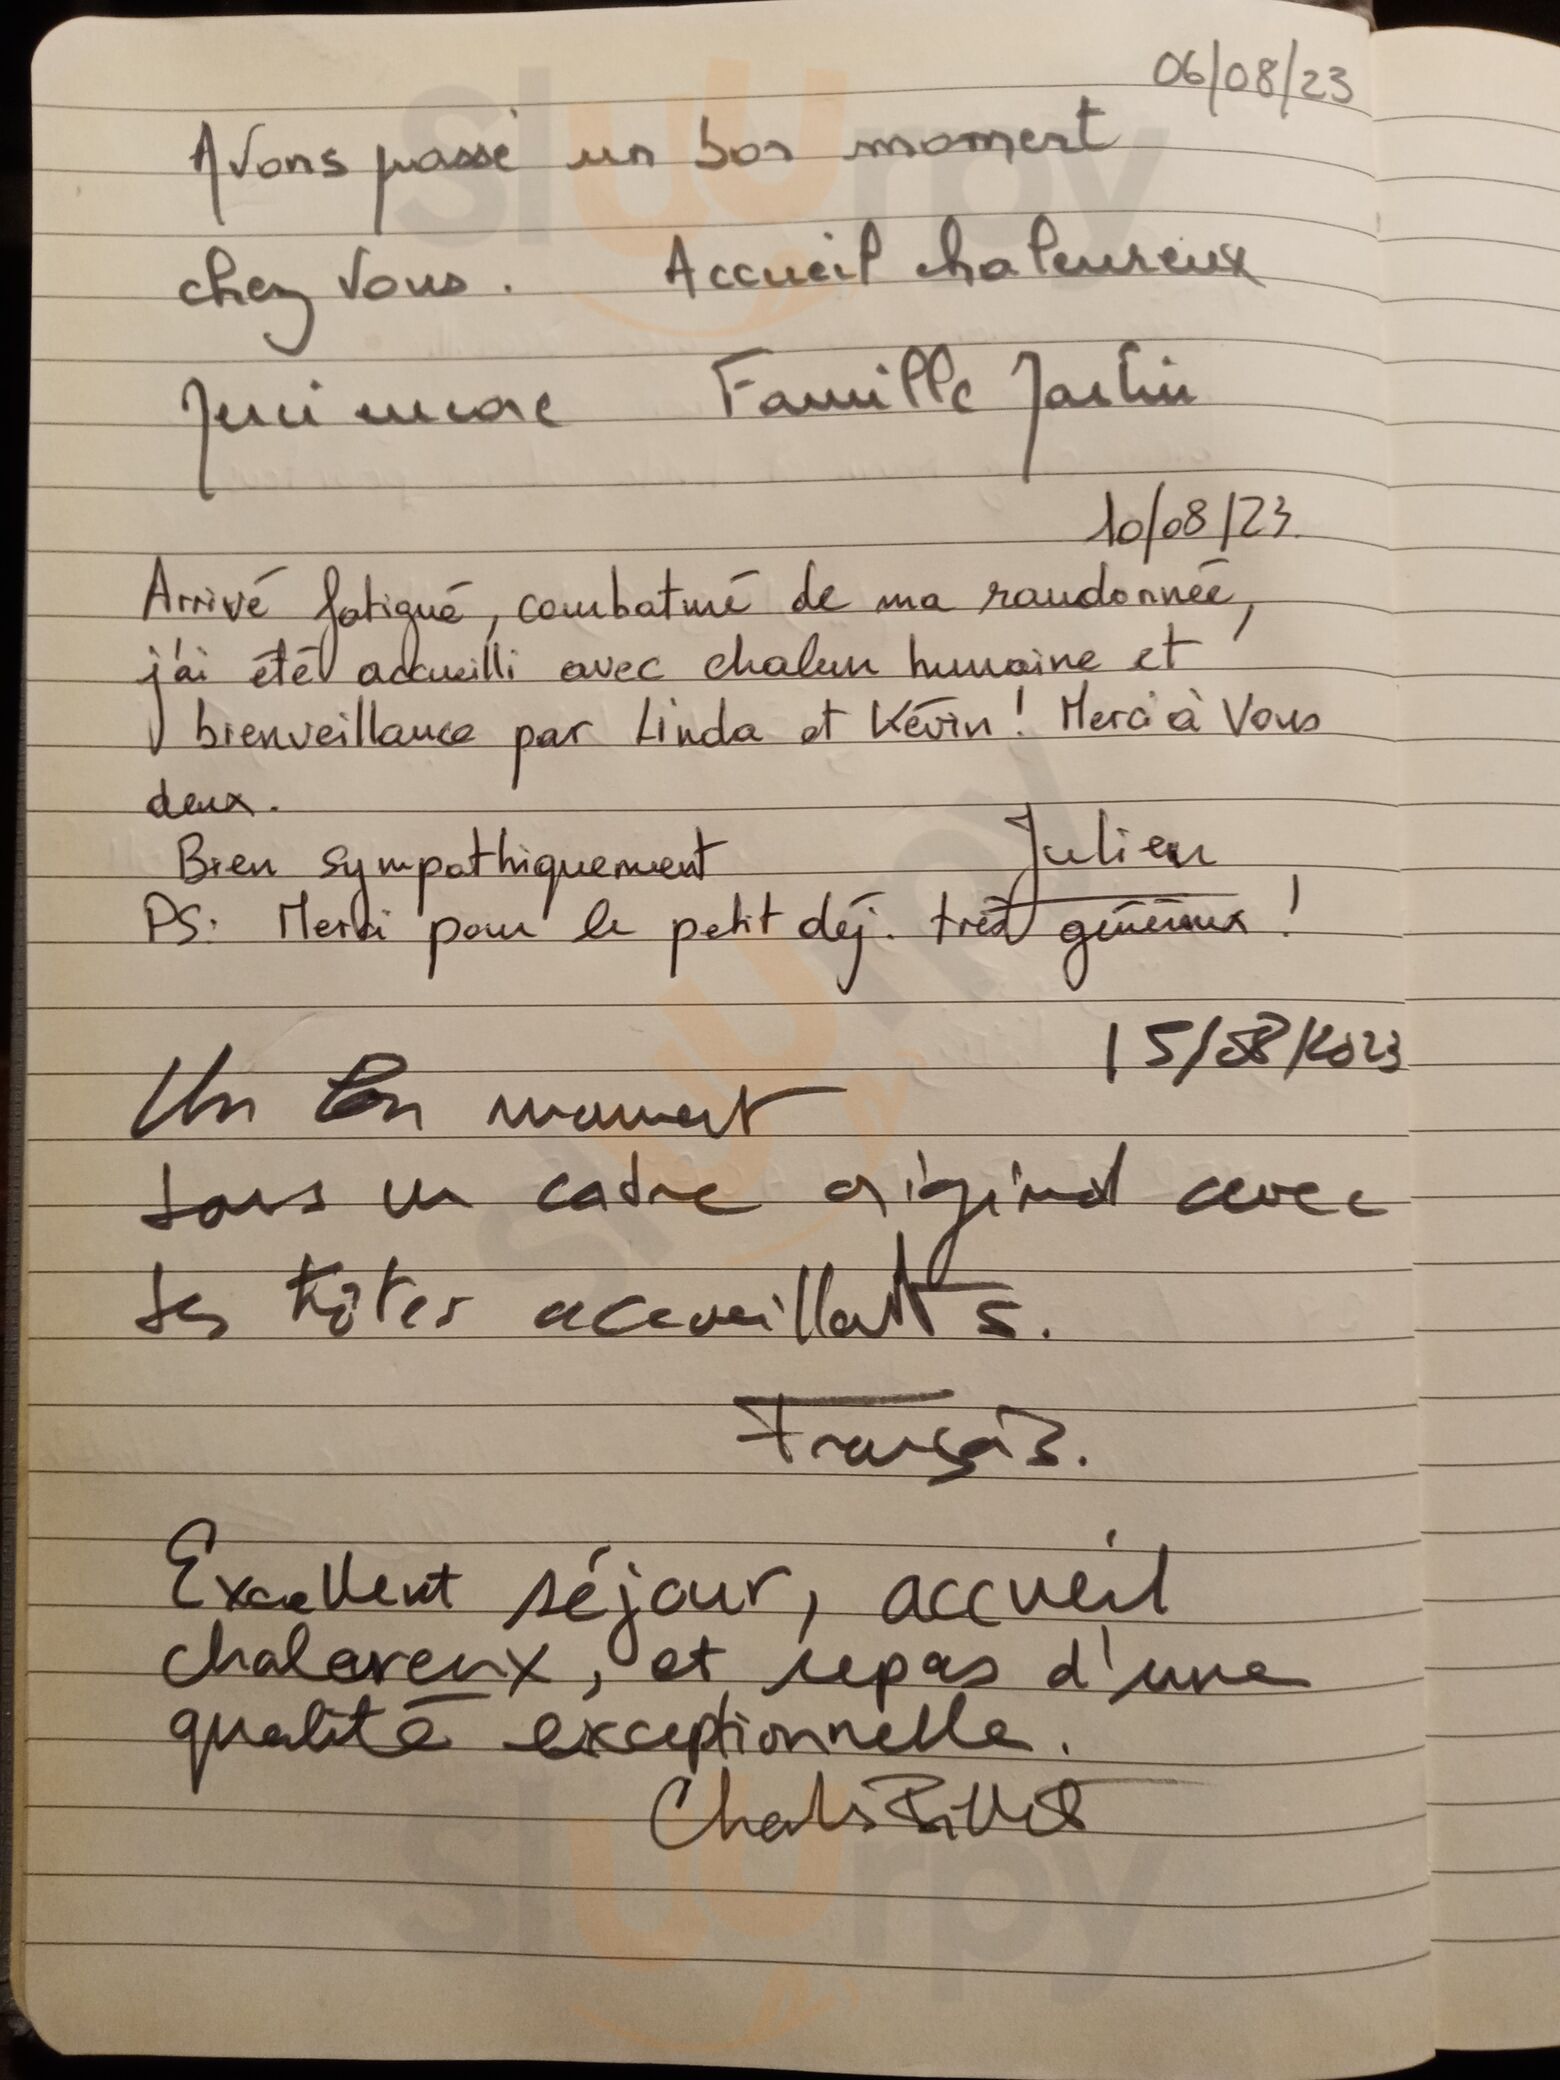 06/08/23
Avons passé un bon moment
chez vous. Accueil chaleureux
Merci encore Famille
10/08/23.
Arrivé fatigué, courbaturé de ma randonnée,
j'ai été accueilli avec chaleur humaine et
bienveillance par Linda et Kévin! Merci à Vous
deux.
Bien sympathiquement Julien
PS: Merci pour le petit déj. très généreux!
15/08/2023
Un bon moment
dans un cadre original avec
des hôtes accueillants.
François.
Excellent séjour, accueil
chalereux, et repas d'une
qualité exceptionnelle.
Charles
sluurpy
sluurpy
sluurpy